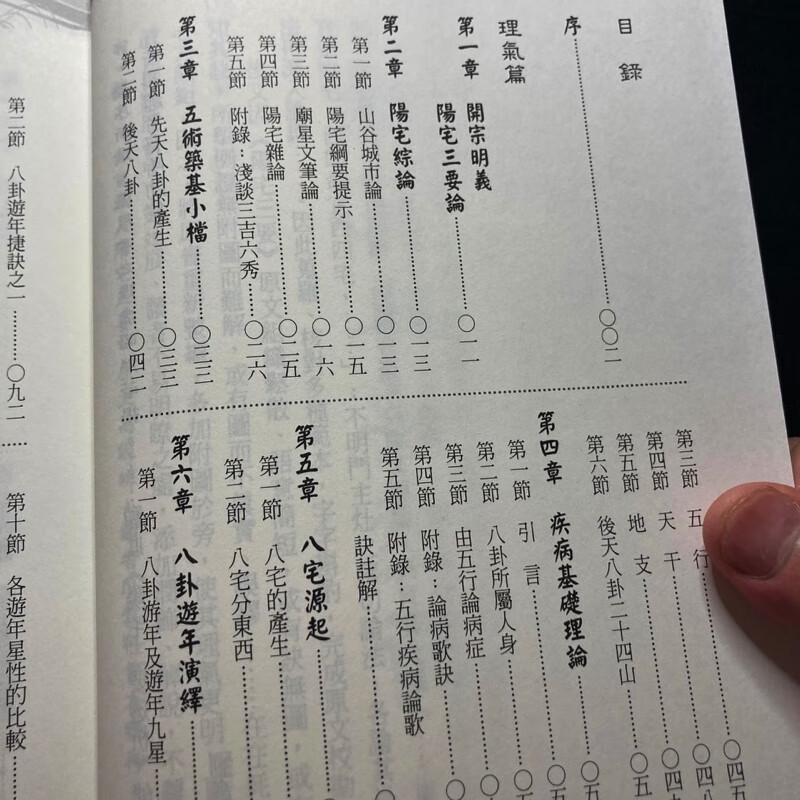 目錄
序……〇〇二
理氣篇
第一章 開宗明義
陽宅三要論……〇一一
第二章 陽宅綜論……〇一三
第一節 山谷城市論……〇一三
第二節 陽宅綱要提示……〇一五
第三節 廟星文筆論……〇一六
第四節 陽宅雜論……〇二五
第五節 附錄：淺談三吉六秀……〇二六
第三章 五術築基小檔……〇三三
第一節 先天八卦的產生……〇三三
第二節 後天八卦……〇四二
第三節 五行……〇四
第四節 天干……〇四八
第五節 地支……〇四
第六節 後天八卦二十四山……〇五
第四章 疾病基礎理論……〇五
第一節 引言……〇五
第二節 八卦所屬人身……〇
第三節 由五行論病症……〇
第四節 附錄：論病歌訣……〇
第五節 附錄：五行疾病論歌
訣註解……〇
第五章 八宅源起……
第一節 八宅的產生……
第二節 八宅分東西……
第六章 八卦遊年演繹……
第一節 八卦游年及遊年九星……
第二節 八卦遊年捷訣之一……〇九二
第十節 各遊年星性的比較……